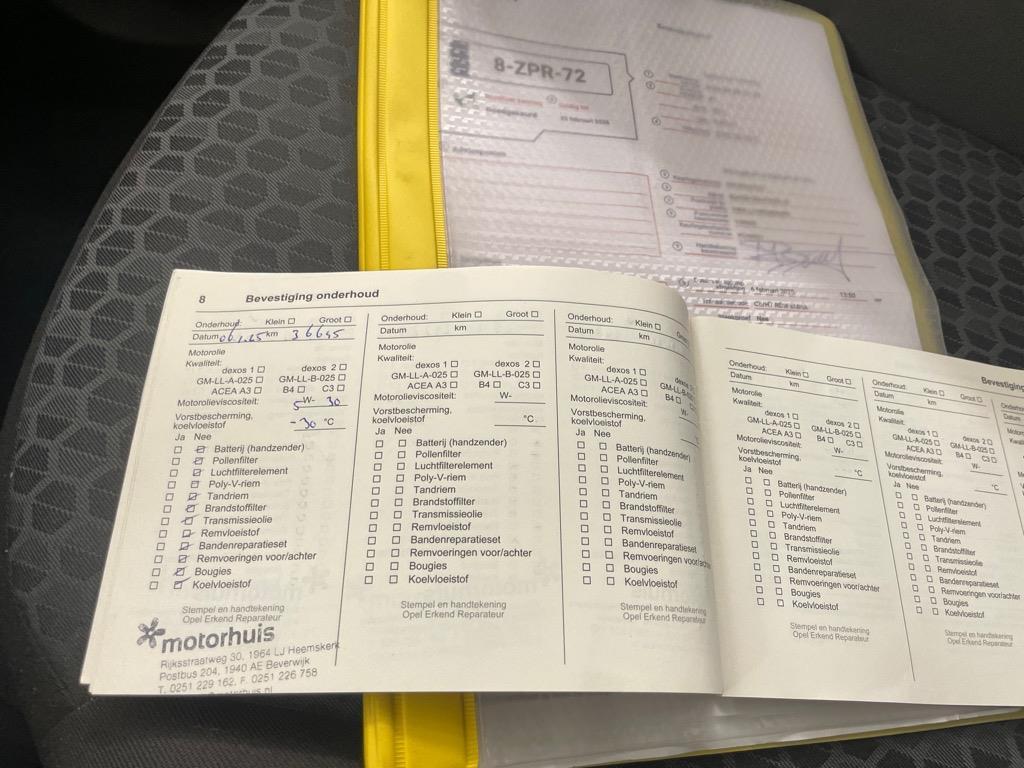 8-ZPR-72
8 Bevestiging onderhoud
Onderhoud: Klein Groot
Datum km 36645
Motorolie
Kwaliteit:
dexos 1 dexos 2
GM-LL-A-025 GM-LL-B-025
ACEA A3 B4 C3
Motorolieviscositeit: 5 W- 30
Vorstbescherming,
koelvloeistof -30 °C
Ja Nee
Batterij (handzender)
Pollenfilter
Luchtfilterelement
Poly-V-riem
Tandriem
Brandstoffilter
Transmissieolie
Remvloeistof
Bandenreparatieset
Remvoeringen voor/achter
Bougies
Koelvloeistof
Stempel en handtekening
Opel Erkend Reparateur
motorhuis
Rijksstraatweg 30, 1964 LJ Heemskerk
Postbus 204, 1940 AE Beverwijk
T. 0251 229 162, F. 0251 226 758
Onderhoud: Klein Groot
Datum km
Motorolie
Kwaliteit:
dexos 1 dexos 2
GM-LL-A-025 GM-LL-B-025
ACEA A3 B4 C3
Motorolieviscositeit: W-
Vorstbescherming,
koelvloeistof °C
Ja Nee
Batterij (handzender)
Pollenfilter
Luchtfilterelement
Poly-V-riem
Tandriem
Brandstoffilter
Transmissieolie
Remvloeistof
Bandenreparatieset
Remvoeringen voor/achter
Bougies
Koelvloeistof
Stempel en handtekening
Opel Erkend Reparateur
Onderhoud: Klein
Datum km
Motorolie
Kwaliteit:
dexos 1
GM-LL-A-025
ACEA A3 B4
Motorolieviscositeit: W-
Vorstbescherming,
koelvloeistof
Ja Nee
Batterij (handzender)
Pollenfilter
Luchtfilterelement
Poly-V-riem
Tandriem
Brandstoffilter
Transmissieolie
Remvloeistof
Bandenreparatieset
Remvoeringen voor/achter
Bougies
Koelvloeistof
Stempel en handtekening
Opel Erkend Reparateur
Onderhoud: Klein Groot
Datum km
Motorolie
Kwaliteit:
dexos 1 dexos 2
GM-LL-A-025 GM-LL-B-025
ACEA A3 B4 C3
Motorolieviscositeit: W-
Vorstbescherming,
koelvloeistof °C
Ja Nee
Batterij (handzender)
Pollenfilter
Luchtfilterelement
Poly-V-riem
Tandriem
Brandstoffilter
Transmissieolie
Remvloeistof
Bandenreparatieset
Remvoeringen voor/achter
Bougies
Koelvloeistof
Stempel en handtekening
Opel Erkend Reparateur
Onderhoud: Klein Groot
Datum km
Motorolie
Kwaliteit:
dexos 1 dexos 2
GM-LL-A-025 GM-LL-B-025
ACEA A3 B4 C3
Motorolieviscositeit: W-
Vorstbescherming,
koelvloeistof °C
Ja Nee
Batterij (handzender)
Pollenfilter
Luchtfilterelement
Poly-V-riem
Tandriem
Brandstoffilter
Transmissieolie
Remvloeistof
Bandenreparatieset
Remvoeringen voor/achter
Bougies
Koelvloeistof
Stempel en handtekening
Opel Erkend Reparateur